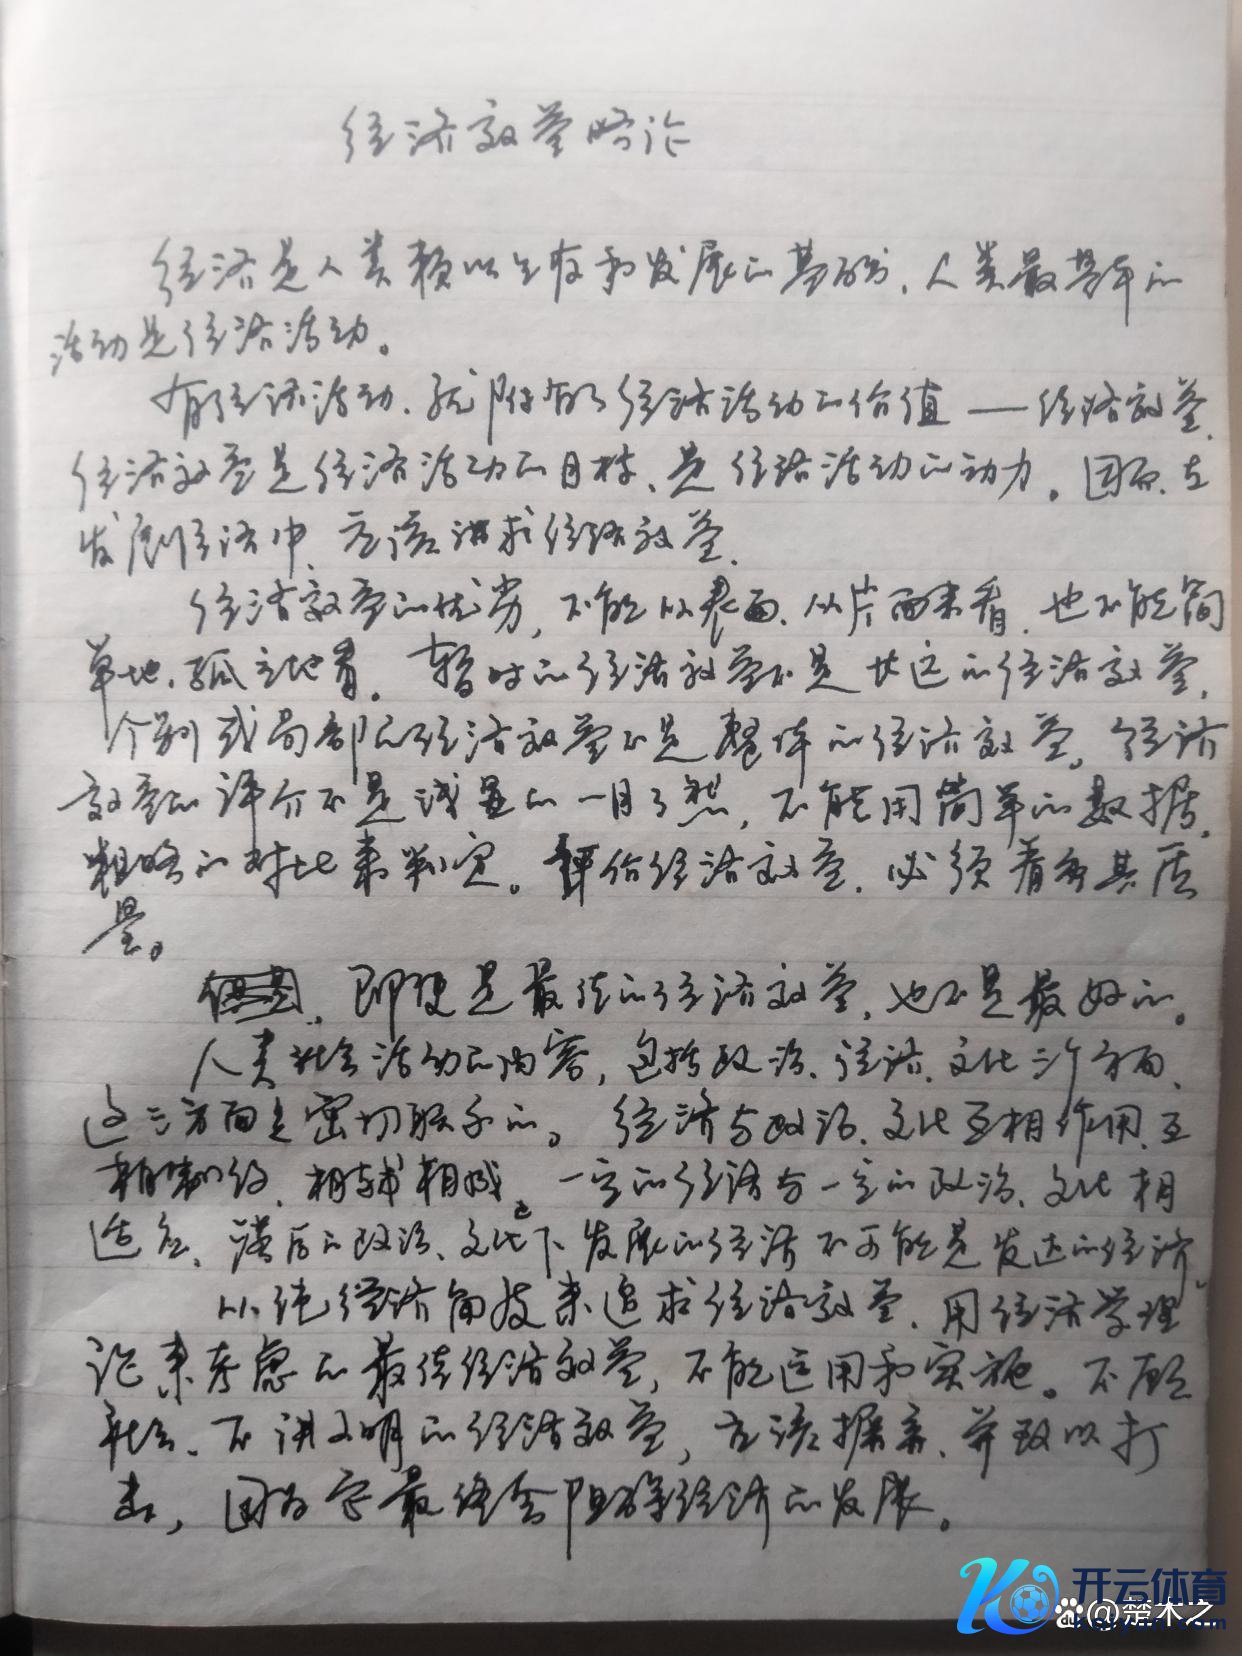 经济效益略论
经济是人类赖以生存和发展的基础，人类最基本的
活动是经济活动。
有了经济活动，就附有了经济活动的价值——经济效益，
经济效益是经济活动的目标、是经济活动的动力。因而，在
发展经济中，应该讲求经济效益，
经济效益的优劣，不能以表面、从片面来看，也不能简
单地、孤立地看。暂时的经济效益不是长远的经济效益，
个别或局部的经济效益不是整体的经济效益。经济
效益的评介不是浅显的一目了然，不能用简单的数据、
粗略的对比来判定。评价经济效益，必须着重其质
量。
即便是最佳的经济效益，也不是最好的。
人类社会活动的内容，包括政治、经济、文化三个方面、
这三方面是密切联系的。经济与政治、文化互相作用、互
相制约、相辅相成。一定的经济与一定的政治、文化相
适应、落后的政治、文化下发展的经济不可能是发达的经济，
以纯经济角度来追求经济效益，用经济学理
论来考虑的最佳经济效益，不能运用和实施。不顾
社会、不讲文明的经济效益，应该摒弃、并致以打
击，因为它最终会阻碍经济的发展。
开云体育
kaiyun.com
@楚木之